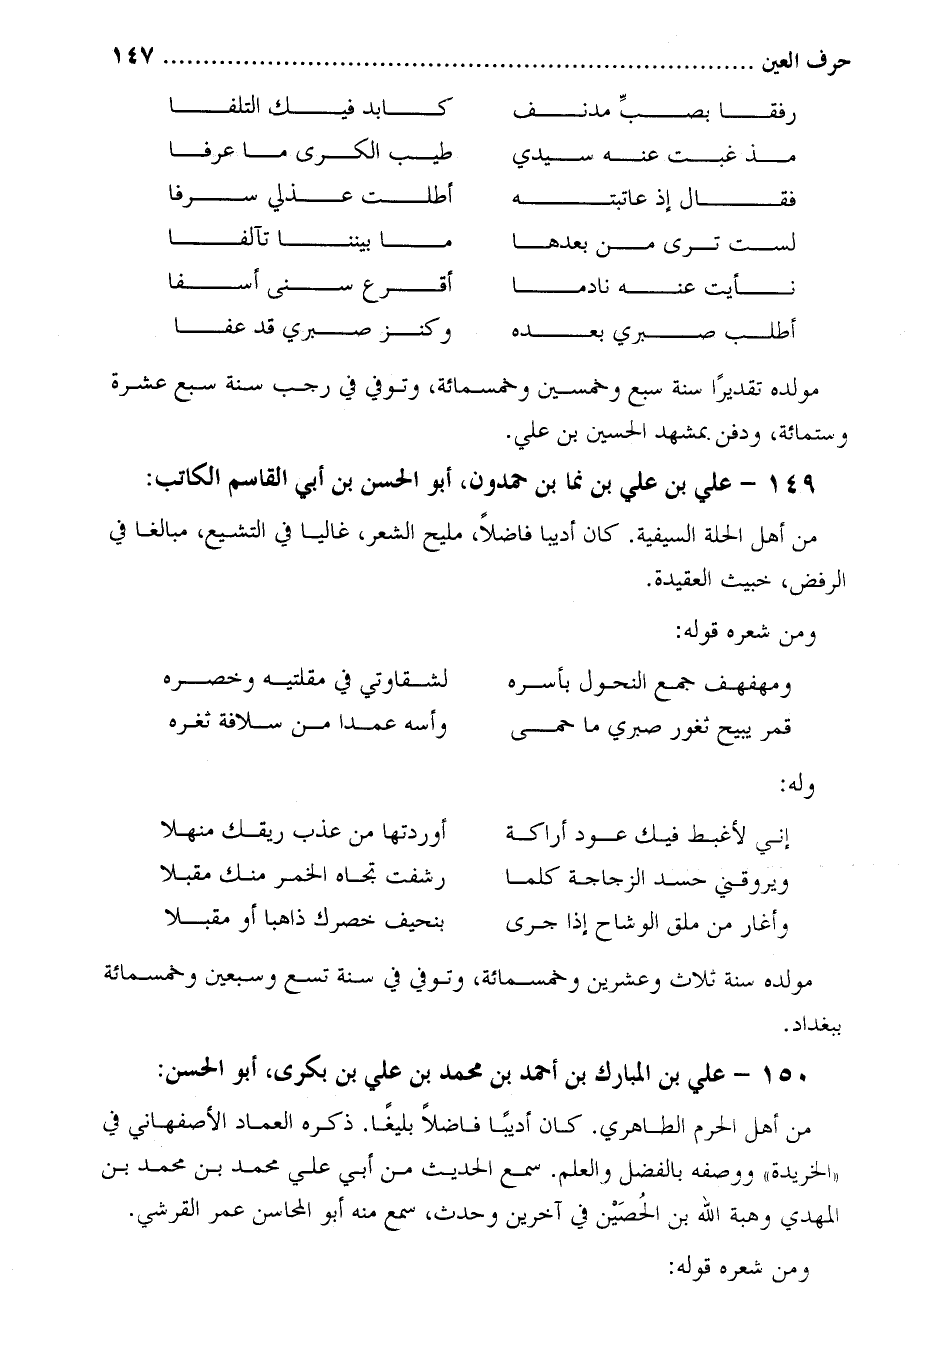 حرف العين ........................................................................ ١٤٧
رفقـــا بصـــبٍّ مدنـــف كـــابد فيـــك التلفـــا
مـــذ غبـــت عنـــه ســـيدي طيـــب الكـــرى مـــا عرفـــا
فقـــال إذ عاتبتـــه أطلـــت عـــذلي ســـرفا
لســـت تـــرى مـــن بعدهـــا مـــا بيننـــا تآلفـــا
نـــأيت عنـــه نادمـــا أقـــرع ســـنى أســـفا
أطلـــب صـــبري بعـــده وكنـــز صـــبري قد عفـــا
مولده تقديرًا سنة سبع وخمسين وخمسمائة، وتوفي في رجب سنة سبع عشرة
وستمائة، ودفن بمشهد الحسين بن علي.
١٤٩ – علي بن علي بن نما بن حمدون، أبو الحسن بن أبي القاسم الكاتب:
من أهل الحلة السيفية. كان أديبا فاضلاً، مليح الشعر، غاليا في التشيع، مبالغا في
الرفض، خبيث العقيدة.
ومن شعره قوله:
ومهفهف جمع النحول بأسره لشقاوتي في مقلتيه وخصره
قمر يبيح ثغور صبري ما حمى وأسه عمدا من سلافة ثغره
وله:
إني لأغبط فيك عود أراكة أوردتها من عذب ريقك منهلا
ويروقني حسد الزجاجة كلما رشفت تجاه الخمر منك مقبلا
وأغار من ملق الوشاح إذا جرى بنحيف خصرك ذاهبا أو مقبلا
مولده سنة ثلاث وعشرين وخمسمائة، وتوفي في سنة تسع وسبعين وخمسمائة
ببغداد.
١٥٠ – علي بن المبارك بن أحمد بن محمد بن علي بن بكرى، أبو الحسن:
من أهل الحرم الطاهري. كان أديبًا فاضلاً بليغًا. ذكره العماد الأصفهاني في
«الخريدة» ووصفه بالفضل والعلم. سمع الحديث من أبي علي محمد بن محمد بن
المهدي وهبة الله بن الحُصَيْن في آخرين وحدث، سمع منه أبو المحاسن عمر القرشي.
ومن شعره قوله: